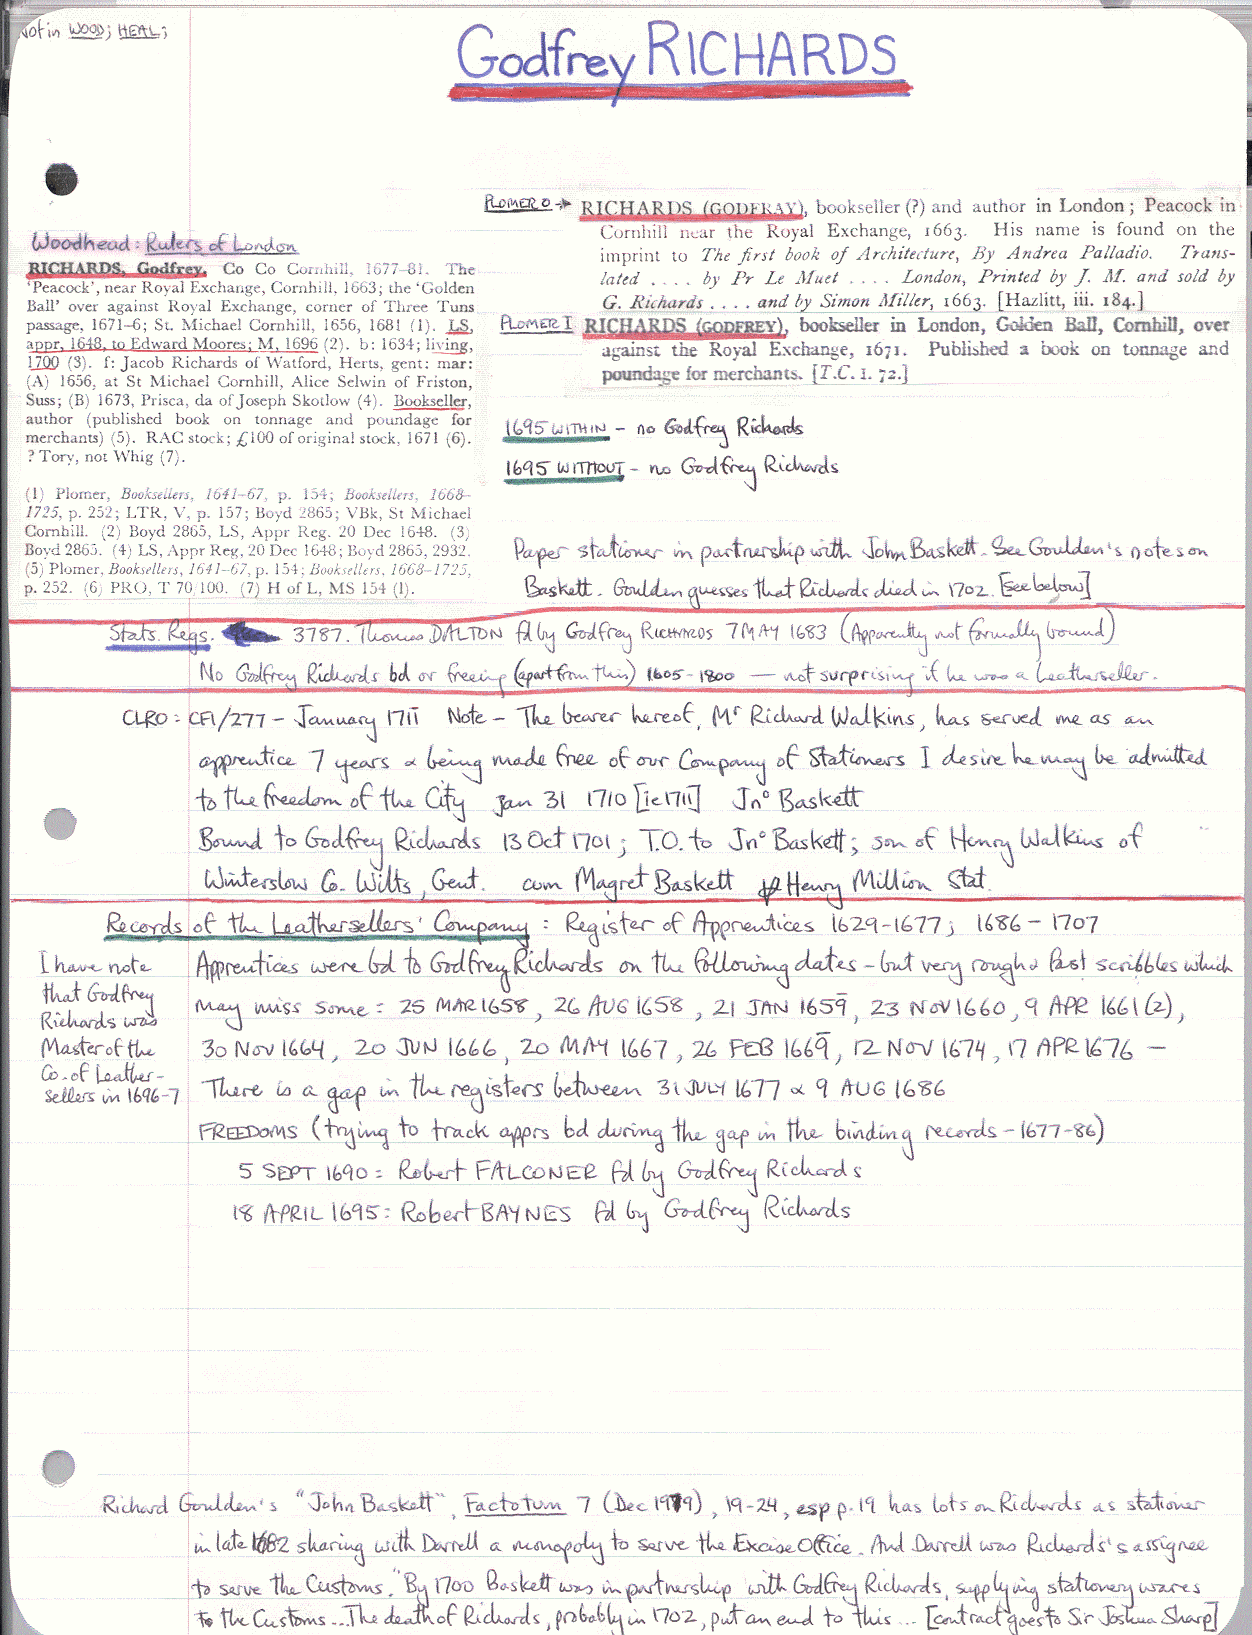 Not in WOOD; HEAL;
Godfrey RICHARDS
Woodhead: Rulers of London
RICHARDS, Godfrey. Co Co Cornhill, 1677-81. The
'Peacock', near Royal Exchange, Cornhill, 1663; the 'Golden
Ball' over against Royal Exchange, corner of Three Tuns
passage, 1671-6; St. Michael Cornhill, 1656, 1681 (1). LS,
appr, 1648, to Edward Moores; M, 1696 (2). b: 1634; living,
1700 (3). f: Jacob Richards of Watford, Herts, gent: mar:
(A) 1656, at St Michael Cornhill, Alice Selwin of Friston,
Suss; (B) 1673, Prisca, da of Joseph Skotlow (4). Bookseller,
author (published book on tonnage and poundage for
merchants) (5). RAC stock; £100 of original stock, 1671 (6).
? Tory, not Whig (7).
(1) Plomer, Booksellers, 1641-67, p. 154; Booksellers, 1668-
1725, p. 252; LTR, V, p. 157; Boyd 2865; VBk, St Michael
Cornhill. (2) Boyd 2865, LS, Appr Reg. 20 Dec 1648. (3)
Boyd 2865. (4) LS, Appr Reg, 20 Dec 1648; Boyd 2865, 2932.
(5) Plomer, Booksellers, 1641-67, p. 154; Booksellers, 1668-1725,
p. 252. (6) PRO, T 70/100. (7) H of L, MS 154 (1).
PLOMER O → RICHARDS (GODFRAY), bookseller (?) and author in London; Peacock in
Cornhill near the Royal Exchange, 1663. His name is found on the
imprint to The first book of Architecture, By Andrea Palladio. Trans-
lated .... by Pr Le Muet .... London, Printed by J. M. and sold by
G. Richards .... and by Simon Miller, 1663. [Hazlitt, iii. 184.]
PLOMER I RICHARDS (GODFREY), bookseller in London, Golden Ball, Cornhill, over
against the Royal Exchange, 1671. Published a book on tonnage and
poundage for merchants. [T.C. I. 72.]
1695 WITHIN - no Godfrey Richards
1695 WITHOUT - no Godfrey Richards
Paper stationer in partnership with John Baskett. See Goulden's notes on
Baskett. Goulden guesses that Richards died in 1702. [see below]
Stats. Regs. 3787. Thomas DALTON fd by Godfrey RICHARDS 7 MAY 1683 (Apparently not formally bound)
No Godfrey Richards bd or freeing (apart from this) 1605-1800 — not surprising if he was a Leatherseller.
CLRO: CF1/277 - January 1711 Note - The bearer hereof, Mr Richard Walkins, has served me as an
apprentice 7 years & being made free of our Company of Stationers I desire he may be admitted
to the freedom of the City Jan 31 1710 [ie 1711] Jno Baskett
Bound to Godfrey Richards 13 Oct 1701; T.O. to Jno Baskett; son of Henry Walkins of
Winterslow Co. Wilts, Gent. cum Magret Baskett Henry Million Stat.
Records of the Leathersellers' Company: Register of Apprentices 1629-1677; 1686-1707
I have note
that Godfrey
Richards was
Master of the
Co. of Leather-
sellers in 1696-7
Apprentices were bd to Godfrey Richards on the following dates - but very rough & fast scribbles which
may miss some: 25 MAR 1658, 26 AUG 1658, 21 JAN 1659, 23 NOV 1660, 9 APR 1661 (2),
30 NOV 1664, 20 JUN 1666, 20 MAY 1667, 26 FEB 1669, 12 NOV 1674, 17 APR 1676 —
There is a gap in the registers between 31 JULY 1677 & 9 AUG 1686
FREEDOMS (trying to track apprs bd during the gap in the binding records - 1677-86)
5 SEPT 1690: Robert FALCONER fd by Godfrey Richards
18 APRIL 1695: Robert BAYNES fd by Godfrey Richards
Richard Goulden's "John Baskett", Factotum 7 (Dec 1979), 19-24, esp p. 19 has lots on Richards as stationer
in late 1682 sharing with Darrell a monopoly to serve the Excise Office. And Darrell was Richards's assignee
to serve the Customs. "By 1700 Baskett was in partnership with Godfrey Richards, supplying stationery wares
to the Customs...The death of Richards, probably in 1702, put an end to this... [contract goes to Sir Joshua Sharp]